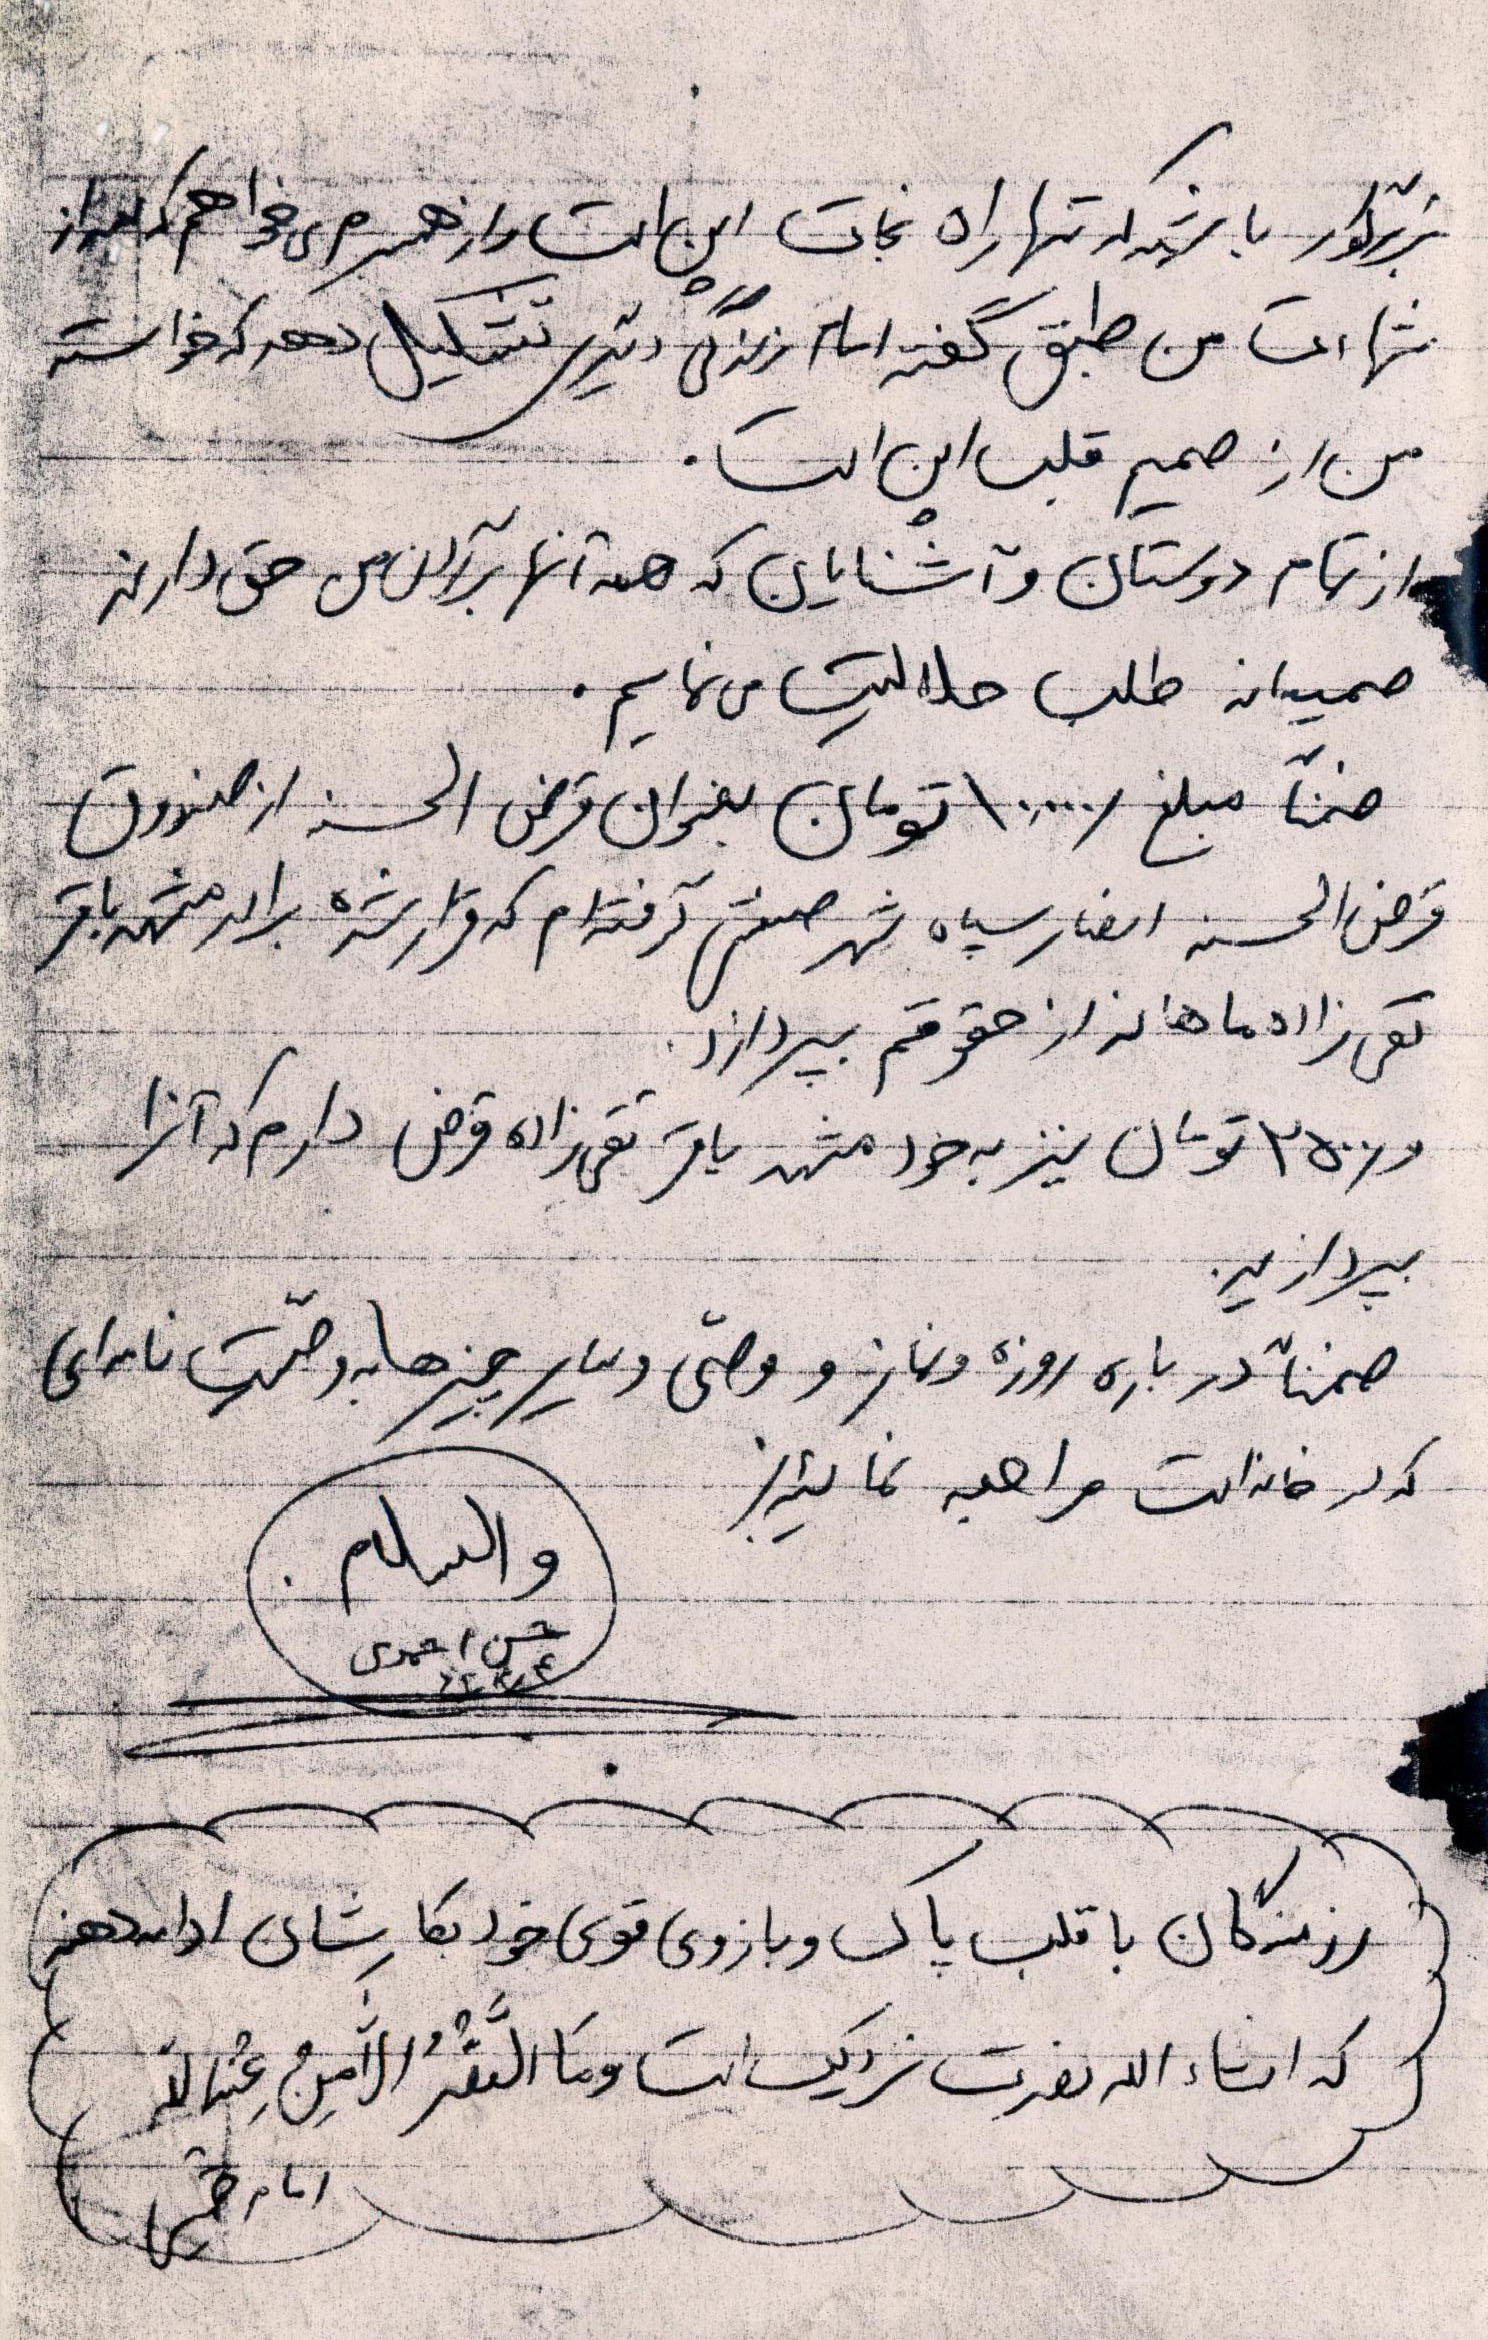 بزرگوار باشید که تنها راه نجات این است و از همسرم می‌خواهم که بعد از
شهادت من طبق گفته امام زندگی دیگری تشکیل دهد که خواسته
من از صمیم قلب این است.
از تمام دوستان و آشنایان که همه آنها برگردن من حق دارند
صمیمانه طلب حلالیت می‌نمایم.
ضمناً مبلغ ۱۰۰۰۰ تومان بعنوان قرض الحسنه از صندوق
قرض الحسنه انصار سپاه شهر صنعتی گرفته‌ام که قرار شده برادر مشهد باقر
تقی‌زاده ماهانه از حقوقم بپردازد.
و ۲۵۰۰ تومان نیز به خود مشهد باقر تقی‌زاده قرض دارم که آنرا
بپردازید.
ضمناً درباره روزه و نماز و وصّی و سایر چیزها به وصّیت نامه‌ای
که در خانه است مراجعه نمائید
والسلام
حسن احمدی
رزمندگان با قلب پاک و بازوی قوی خود بکارشان ادامه دهند
که انشاء الله نصرت نزدیک است وَمَا النَّصْرُ اِلاّٰ مِنْ عِنْدِ اللهِ
امام خمینی